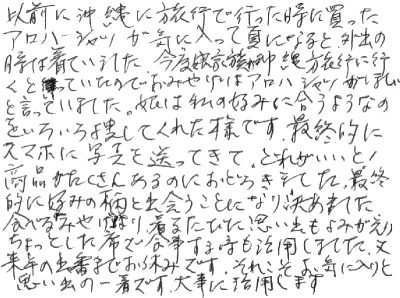 以前に沖縄に旅行で行った時に買った
アロハシャツが気に入って夏になると外出の
時は着ていました。今度娘家族が沖縄方旅行に行
くと言っていたのでおみやげはアロハシャツがほしい
と言っていました。娘は私の好みに合うようなの
をいろいろ探してくれた様です。最終的に
スマホに写真を送ってきて、どれがいいと!
商品がたくさんあるのにおどろきました。最終
的に好みの柄と出会うことになり決めました
食べるおみやげより、着るたびに思い出もよみがえり
ちょっとした席で食事する時も活用しました。又
来年の出番までお休みです。それこそお気に入りと
思い出の一着です。大事に活用します